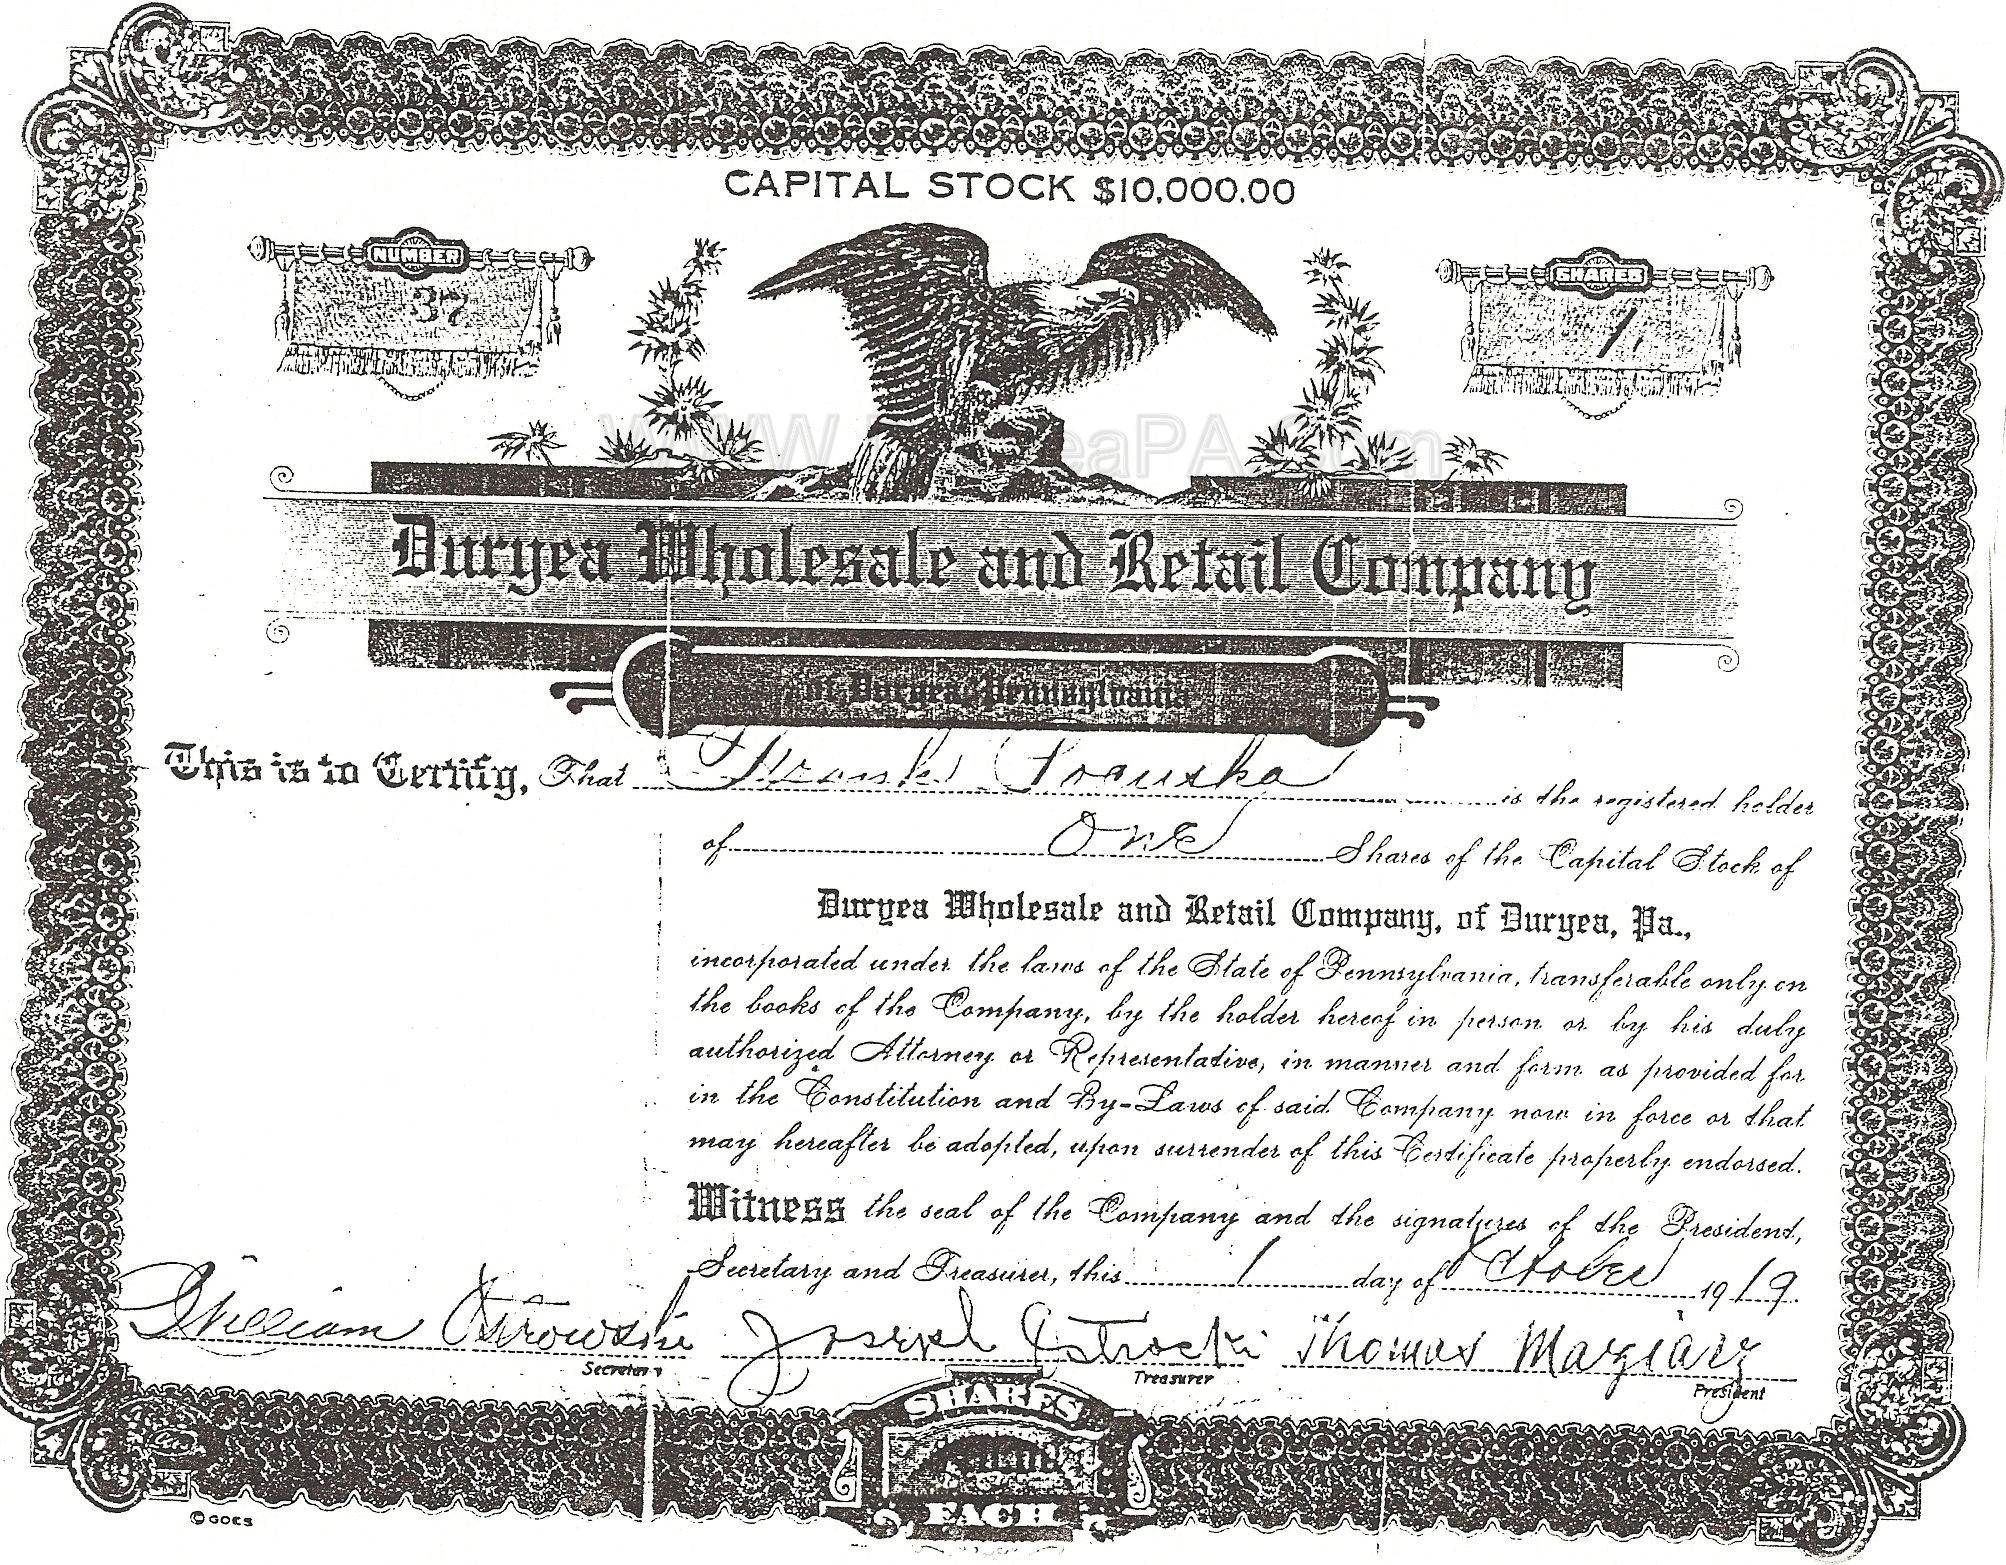 CAPITAL STOCK $10,000.00
NUMBER
37
SHARES
1
Duryea Wholesale and Retail Company
of Duryea Pennsylvania
This is to Certify, That Frank is the registered holder
of One Shares of the Capital Stock of
Duryea Wholesale and Retail Company, of Duryea, Pa.,
incorporated under the laws of the State of Pennsylvania, transferable only on
the books of the Company, by the holder hereof in person or by his duly
authorized Attorney or Representative, in manner and form as provided for
in the Constitution and By-Laws of said Company now in force or that
may hereafter be adopted, upon surrender of this Certificate properly endorsed.
Witness the seal of the Company and the signatures of the President,
Secretary and Treasurer, this 1 day of October 1919
William Ostrowski Joseph Ostrocki Thomas Maziarz
Secretary Treasurer President
SHARES
EACH
© GOES